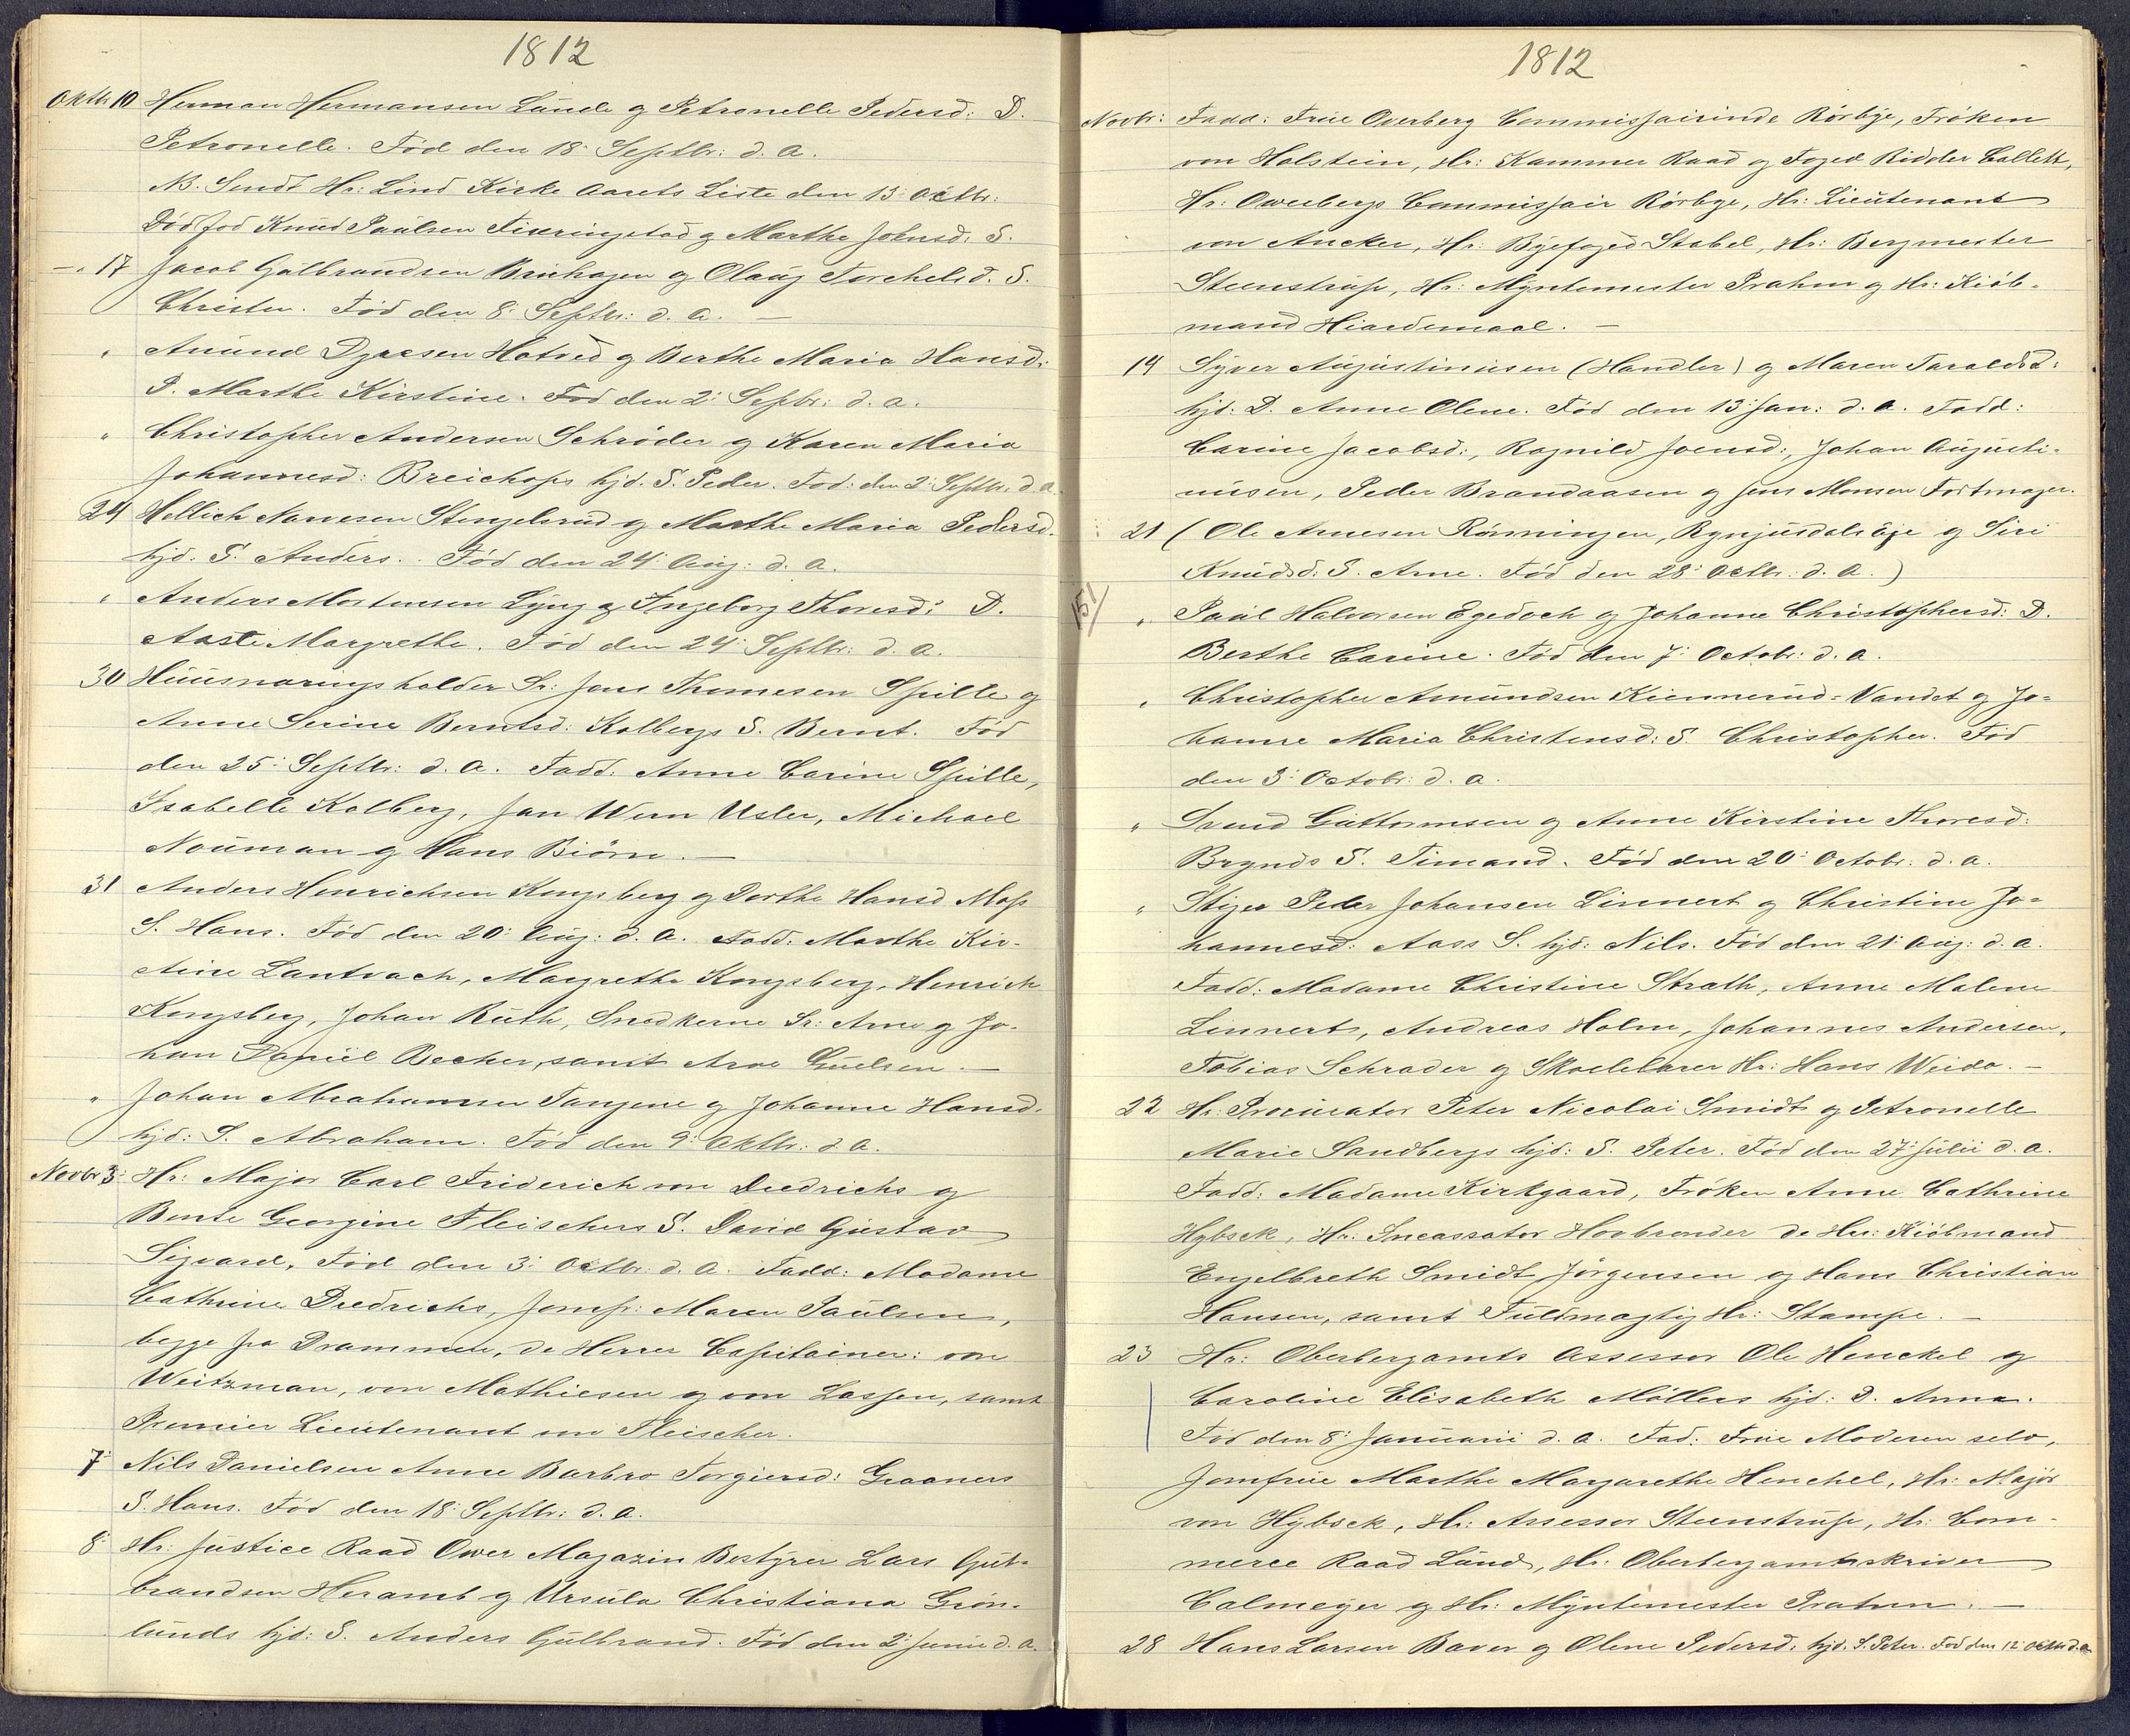 1812
Oktb 10 Herman Hermansen Lünde g Petronelle Pedersd: D.
Petronelle. Fød den 18: Septbr: d. a.
NB. Sendt Hr: Lind Kirke Aarets Liste den 13: Octbr:
Dödfød Knud Paulsen Fixringstad g Marthe Johnsd: S.
— " 17 Jacob Gulbrandsen Bruhagen g Olaug Torchelsd. S.
Christen. Fød den 8: Septbr: d. a. —
" Amund Dyresen Hotved g Berthe Maria Hansd:
D. Marthe Kirstine. Fød den 2: Septbr: d. a.
" Christopher Andersen Schrøder g Karen Maria
Johannesd: Breichops hjd. S. Peder. Fød: den 2: Septbr. d. a.
24 Hellich Narvesen Stengelsrud g Marthe Maria Pedersd.
hjd. S. Anders. Fød den 24: Aug: d. a.
" Anders Mortensen Lyng g Ingeborg Thoresd: D.
Aaste Margrethe. Fød den 24: Septbr: d. a.
30 Huusnæringsholder Sr: Jens Thomesen Spille g
Anne Serine Berntsd: Kolbergs S. Bernt. Fød
den 25: Septbr: d. a. Fadd. Anne Carine Spille,
Isabelle Kolberg, Jan Wern Usler, Michael
Nouman g Hans Biörn. —
31 Anders Henrichsen Kongsberg g Dorthe Hansd Moss
S. Hans. Fød den 20: Aug: d. a. Fadd. Marthe Kir-
stine Lantvach, Margrethe Kongsberg, Henrich
Kongsberg, Johan Ruth, Snedkerne Sr: Arne g Jo-
han Daniel Becker, samt Arve Guelsen. —
" Johan Abrahamsen Tangene g Johanne Hansd.
hjd: S. Abraham. Fød den 9: Oktbr: d. a.
Novbr 3: Hr: Major Carl Friderich von Diedrichs og
Bente Georgine Fleischers S. David Gustav
Sigvard. Fød den 3: Octbr: d. a. Fadd: Madame
Cathrine Diedrichs, Jomfr: Maren Paulsen,
begge fra Drammen, de Herrer Capitainer: von
Weitzman, von Mathiesen g von Lassen, samt
Premier Lieutenant von Fleischer.
7: Nils Danielsen Anne Barbro Torgiersd: Graaners
S. Hans. Fød den 18: Septbr: d. a.
8: Hr: Justice Raad Over Magazin Bestyrer Lars Gul-
brandsen Heramb g Ursula Christiana Grön-
lunds hjd: S. Anders Gulbrand. Fød den 2: Junii d. a.
1812
Novbr: Fadd: Frue Overberg Commissairinde Rörbye, Frøken
von Holstein, Hr: Kammer Raad g Foged Ridder Collett,
Hr: Overbergs Commissair Rörbye, Hr: Lieutenant
von Ancker, Hr: Byefoged Stabel, Hr: Bergmester
Steenstrup, Hr: Myntemester Prahm g Hr: Kiöb-
mand Hiardemaal. —
14 Syver Augustinusen (Handler) g Maren Taraldsd:
hjd: D. Anne Olene. Fød den 13: Jan: d. a. Fadd:
Carine Jacobsd:, Ragnild Joensd:, Johan Augusti-
nusen, Peder Brandaasen g Jens Monsen Fortmager.
21 (Ole Arnesen Rönningen, Rynjusdals Eje g Siri
Knudsd: S. Arne. Fød den 28: Octbr: d. a.)
151
" Paul Halvorsen Egedoch g Johanne Christophersd: D.
Berthe Carine. Fød den 7: Octobr: d. a.
" Christopher Amundsen Kiennerud-Vandet g Jo-
hanne Maria Christensd: S. Christopher. Fød
den 3: Octobr: d. a.
" Svend Guttormsen g Anne Kirstine Thoresd:
Brynds S. Timand. Fød den 20: Octobr: d. a.
" Stiger Peder Johansen Linnert g Christine Jo-
hannesd: Aass S. hjd: Nils. Fød den 21: Aug: d. a.
Fadd: Madame Christine Strath, Anne Malene
Linnerts, Andreas Holm, Johannes Andersen,
Tobias Schrader g Skoelelærer Hr: Hans Weida. —
22 Hr: Procurator Peter Nicolai Smidt g Petronelle
Marie Sandbergs hjd: S. Peter. Fød den 27: Julii d. a.
Fadd: Madame Kirkgaard, Frøken Anne Cathrine
Hybsek, Hr: Incassator Hovbrender de Hrr: Kiöbmand
Engelbreth Smidt Jörgensen og Hans Christian
Hansen, samt Fuldmagtig Hr: Stampe. —
23 Hr: Oberbergamts Assessor Ole Henckel g
Caroline Elisabeth Möllers hjd: D. Anna.
Fød den 8: Januarii d. a. Fad: Frue Moderen selv,
Jomfrue Marthe Margarethe Henckel, Hr: Majör
von Hybsek, Hr: Assessor Steenstrup, Hr: Com-
merce Raad Lund, Hr: Oberbergamtsskriver
Calmeyer g Hr: Myntemester Prahm. —
28 Hans Larsen Baver g Olene Pedersd: hjd. S. Peter. Fød den 12: Octbr d. a.